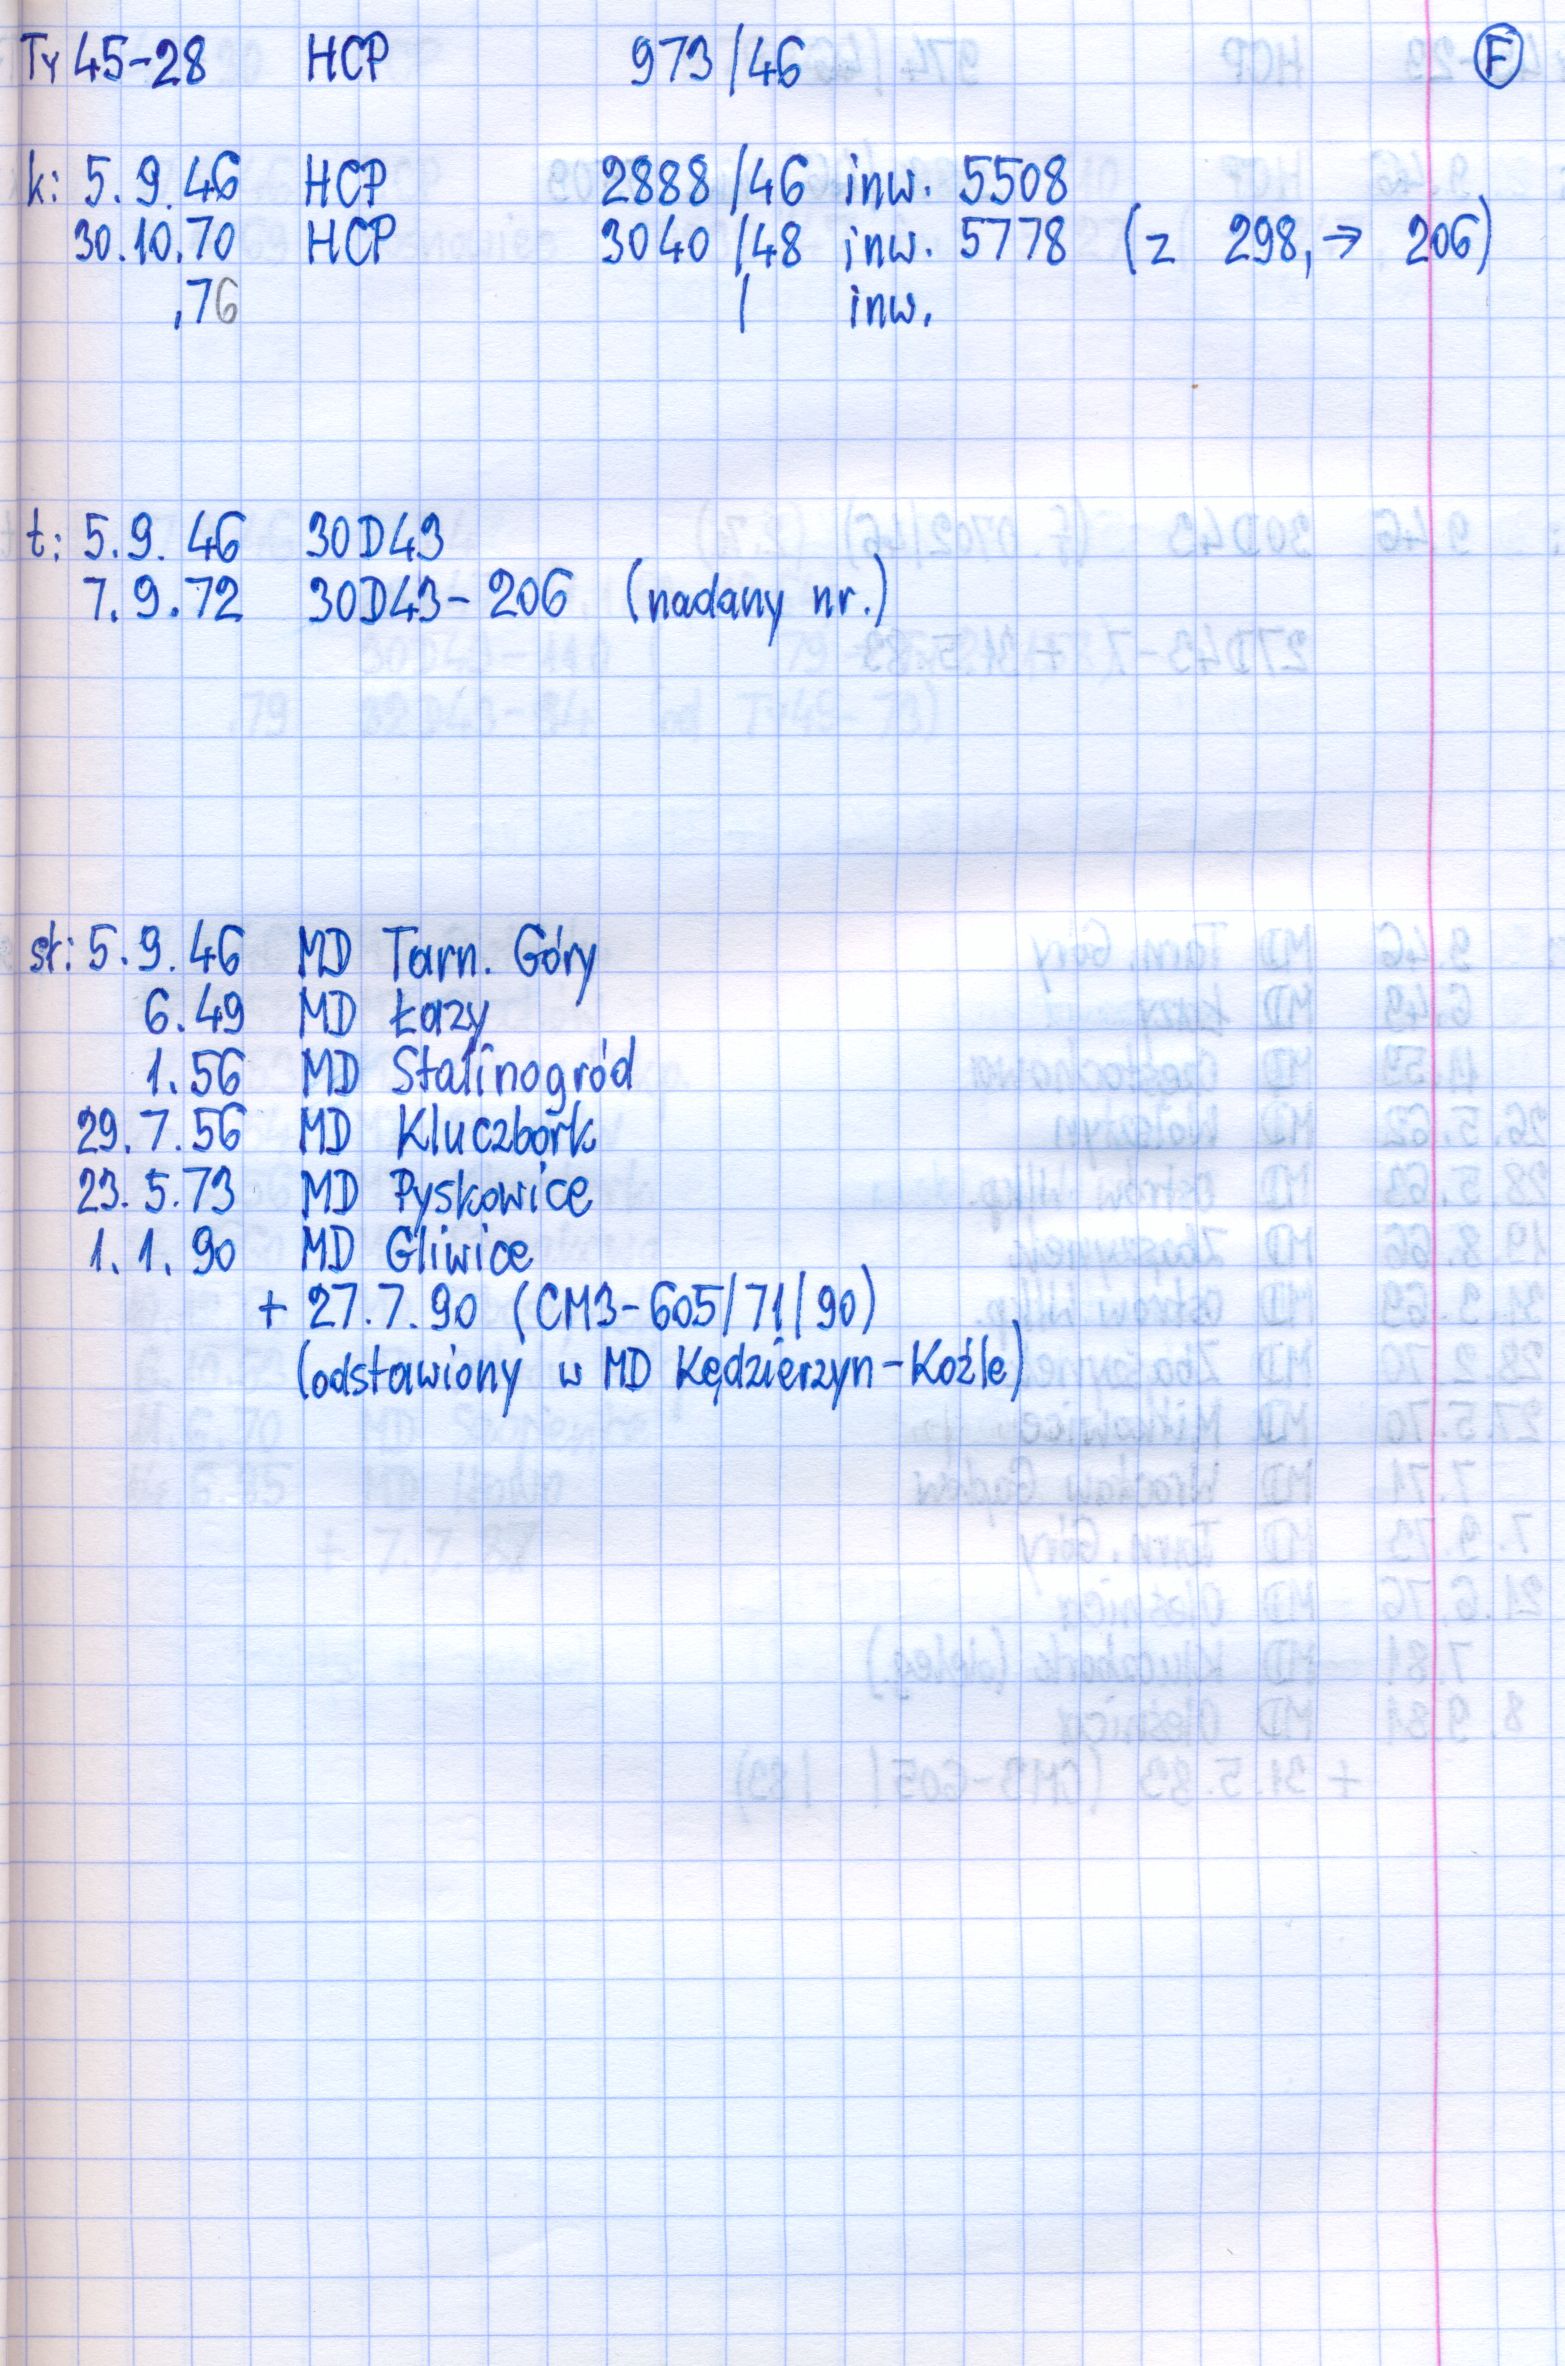 Ty 45-28 HCP 973/46 F
k: 5.9.46 HCP 2888/46 inw. 5508
30.10.70 HCP 3040/48 inw. 5778 (z 298, → 206)
.76 / inw.
t: 5.9.46 30D43
7.9.72 30D43-206 (nadany nr.)
st: 5.9.46 MD Tarn. Góry
6.49 MD Łazy
1.56 MD Stalinogród
29.7.56 MD Kluczbork
23.5.73 MD Pyskowice
1.1.90 MD Gliwice
+ 27.7.90 (CM3-605/71/90)
(odstawiony w MD Kędzierzyn-Koźle)